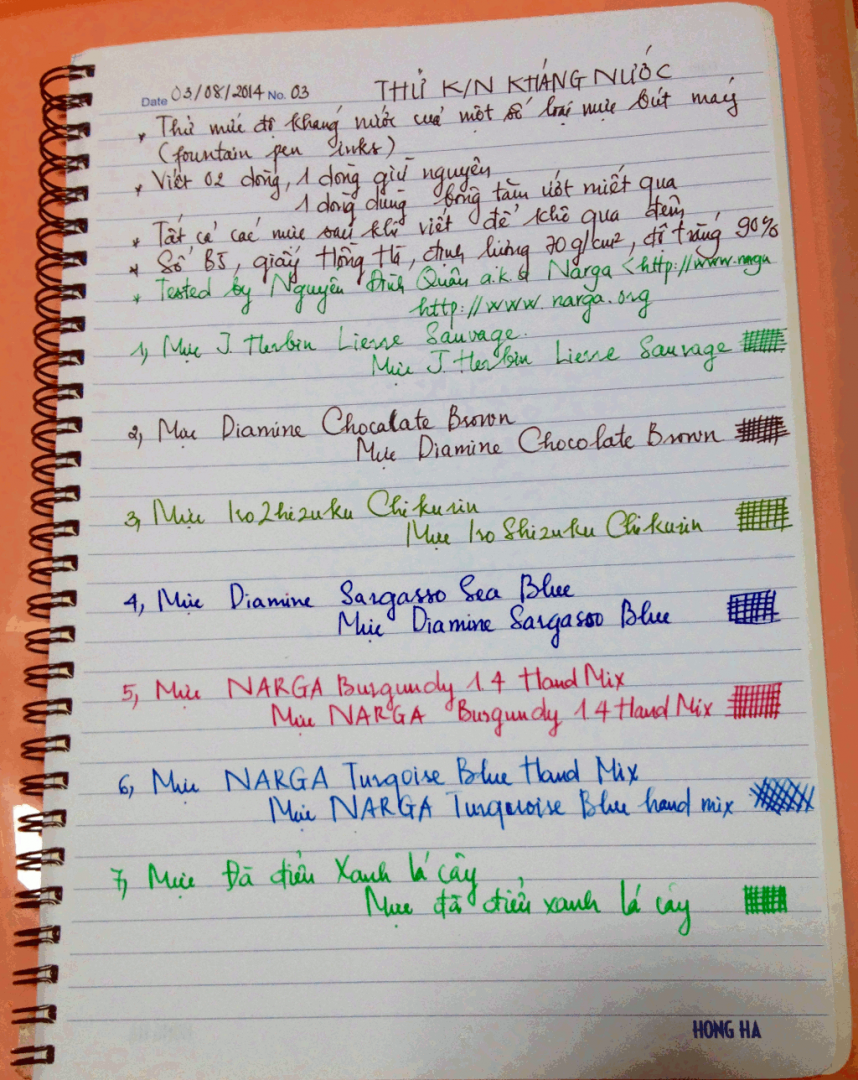 Date 03/08/2014 No. 03 THỬ K/N KHÁNG NƯỚC
* Thử mức độ kháng nước của một số loại mực bút máy
(fountain pen inks)
* Viết 02 dòng, 1 dòng giữ nguyên
1 dòng dùng bông tẩm ướt miết qua
* Tất cả các mực sau khi viết để khô qua đêm
* Sổ B5, giấy Hồng Hà, định lượng 70g/cm², độ trắng 90%
* Tested by Nguyễn Đình Quân a.k.a Narga <http://www.narga
http://www.narga.org
1, Mực J. Herbin Lierre Sauvage.
Mực J. Herbin Lierre Sauvage
2, Mực Diamine Chocalate Brown
Mực Diamine Chocolate Brown
3, Mực Iro2hizuku Chikurin
Mực Iro Shizuku Chikurin
4, Mực Diamine Sargasso Sea Blue
Mực Diamine Sargasso Blue
5, Mực NARGA Burgundy 1.4 Hand Mix
Mực NARGA Burgundy 1.4 Hand Mix
6, Mực NARGA Turqoise Blue Hand Mix
Mực NARGA Turquoise Blue hand mix
7, Mực Đà điểu Xanh lá cây
Mực đà điểu xanh lá cây
HONG HA